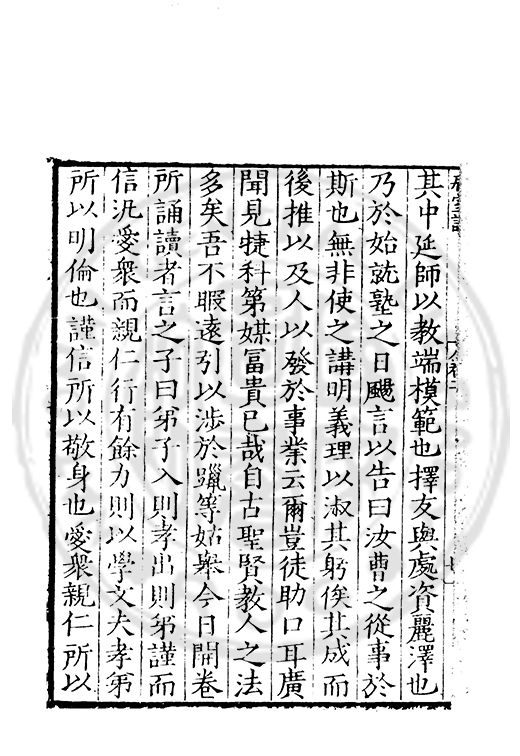 其中延師以教端模範也擇友與處資麗澤也
乃於始就塾之日颺言以告曰汝曹之從事於
斯也無非使之講明義理以淑其躬俟其成而
後推以及人以發於事業云爾豈徒助口耳廣
聞見捷科第媒富貴已哉自古聖賢教人之法
多矣吾不暇遠引以涉於躐等姑舉今日開卷
所誦讀者言之子曰弟子入則孝出則弟謹而
信汎愛衆而親仁行有餘力則以學文夫孝弟
所以明倫也謹信所以敬身也愛衆親仁所以